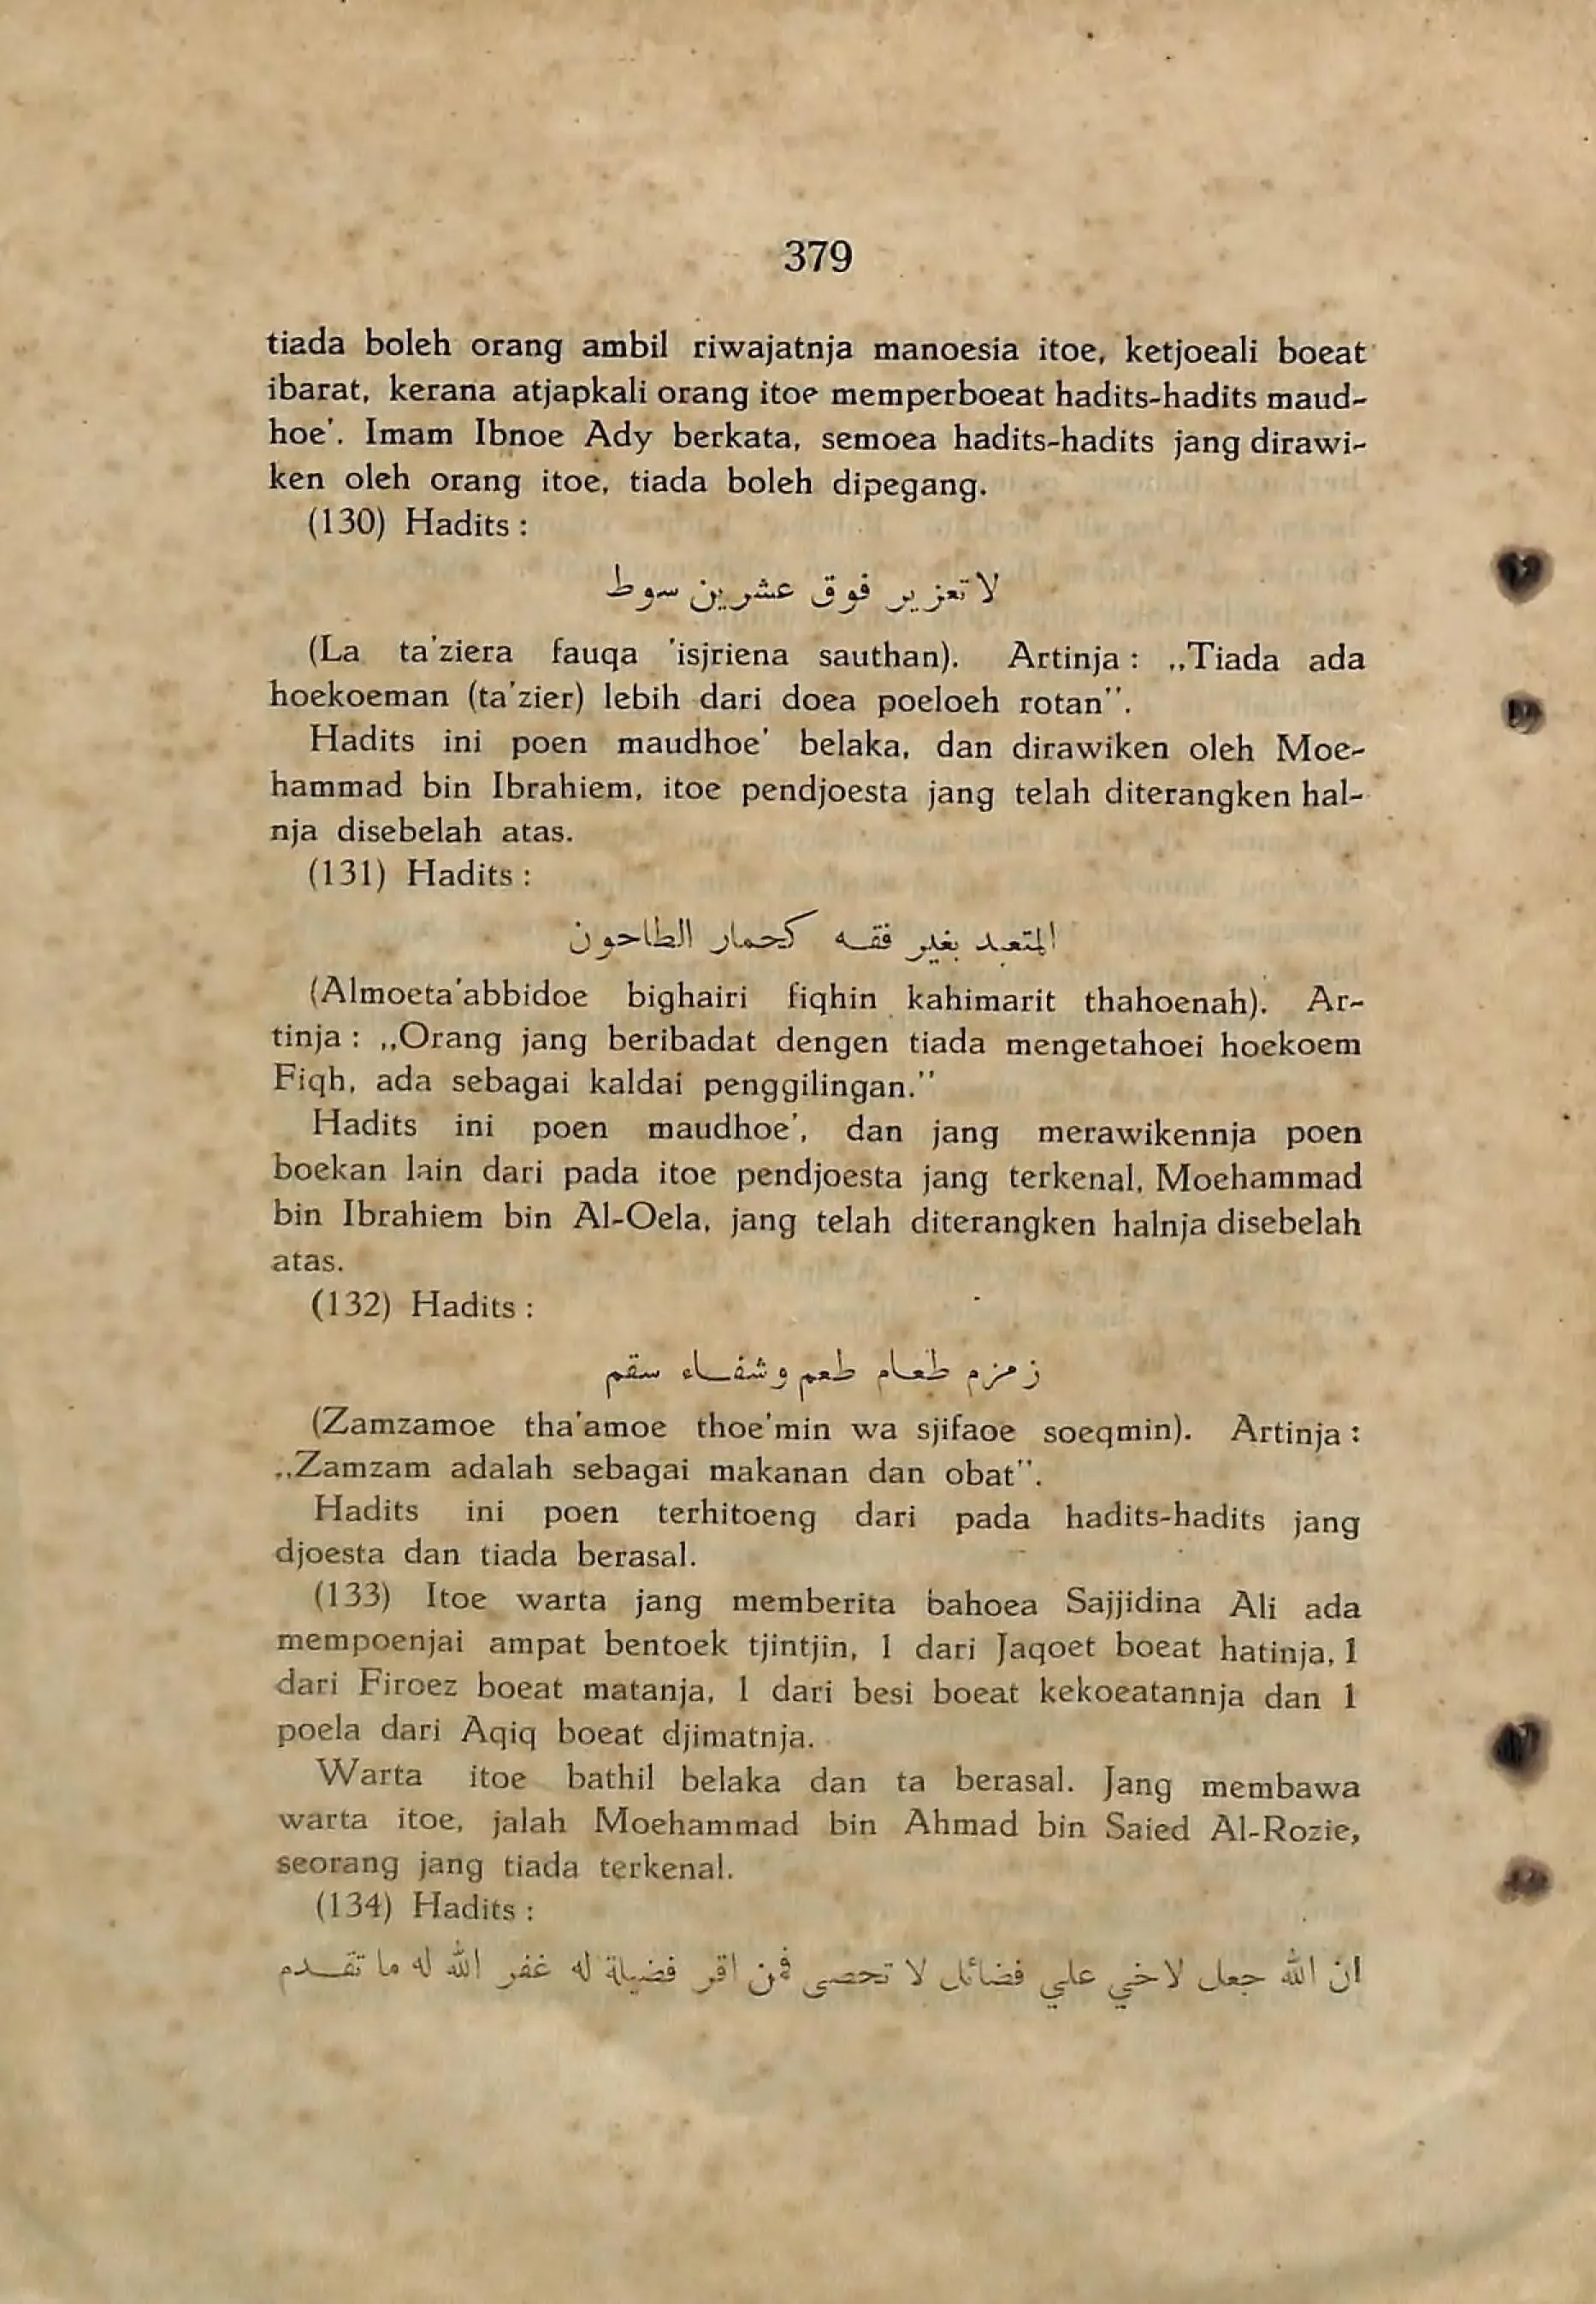 379
tiada boleh orang ambil riwajatnja manoesia itoe, ketjoeali boeat
ibarat, kerana atjapkali orang itoe memperboeat hadits-hadits maud-
hoe'. Imam Ibnoe Ady berkata, semoea hadits-hadits jang dirawi-
ken oleh orang itoe, tiada boleh dipegang.
(130) Hadits :
لا تعزير فوق عشرين سوط
(La ta'ziera fauqa 'isjriena sauthan). Artinja : „Tiada ada
hoekoeman (ta'zier) lebih dari doea poeloeh rotan".
Hadits ini poen maudhoe' belaka, dan dirawiken oleh Moe-
hammad bin Ibrahiem, itoe pendjoesta jang telah diterangken hal-
nja disebelah atas.
(131) Hadits :
المتعبد بغير فقه كحمار الطاحون
(Almoeta'abbidoe bighairi fiqhin kahimarit thahoenah). Ar-
tinja : „Orang jang beribadat dengen tiada mengetahoei hoekoem
Fiqh, ada sebagai kaldai penggilingan."
Hadits ini poen maudhoe', dan jang merawikennja poen
boekan lain dari pada itoe pendjoesta jang terkenal, Moehammad
bin Ibrahiem bin Al-Oela, jang telah diterangken halnja disebelah
atas.
(132) Hadits :
زمزم طعام طعم وشفاء سقم
(Zamzamoe tha'amoe thoe'min wa sjifaoe soeqmin). Artinja :
„Zamzam adalah sebagai makanan dan obat".
Hadits ini poen terhitoeng dari pada hadits-hadits jang
djoesta dan tiada berasal.
(133) Itoe warta jang memberita bahoea Sajjidina Ali ada
mempoenjai ampat bentoek tjintjin, 1 dari Jaqoet boeat hatinja, 1
dari Firoez boeat matanja, 1 dari besi boeat kekoeatannja dan 1
poela dari Aqiq boeat djimatnja.
Warta itoe bathil belaka dan ta berasal. Jang membawa
warta itoe, jalah Moehammad bin Ahmad bin Saied Al-Rozie,
seorang jang tiada terkenal.
(134) Hadits :
ان الله جعل لاخي علي فضائل لا تحصى فمن اقر فضيلة له غفر الله له ما تقدم